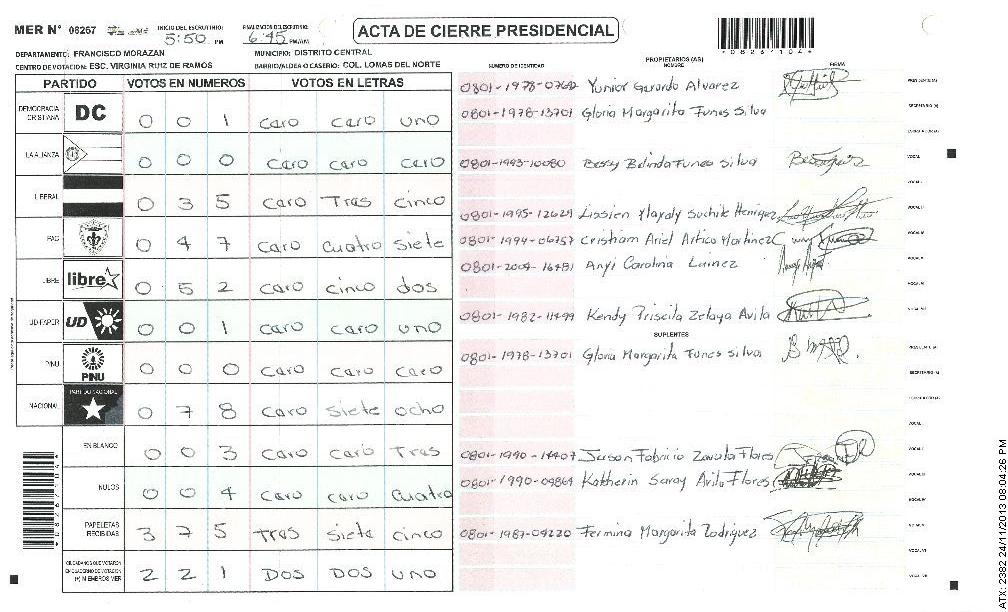 MER N° 08267 INICIO DEL ESCRUTINIO: 5:50 PM FINALIZACION DEL ESCRUTINIO: 6:45 PM/AM
ACTA DE CIERRE PRESIDENCIAL
DEPARTAMENTO: FRANCISCO MORAZAN MUNICIPIO: DISTRITO CENTRAL
CENTRO DE VOTACION: ESC. VIRGINIA RUIZ DE RAMOS BARRIO/ALDEA O CASERIO: COL. LOMAS DEL NORTE
PARTIDO VOTOS EN NUMEROS VOTOS EN LETRAS
DEMOCRACIA CRISTIANA DC 0 0 1 caro caro uno
LA ALIANZA 0 0 0 caro caro cero
LIBERAL 0 3 5 caro Tras cinco
PAC 0 4 7 caro cuatro siete
LIBRE libre 0 5 2 caro cinco dos
UD-FAPER UD 0 0 1 caro caro uno
PINU PINU 0 0 0 caro caro caro
NACIONAL PARTIDO NACIONAL 0 7 8 caro siete ocho
EN BLANCO 0 0 3 caro caro Tras
NULOS 0 0 4 caro caro cuatro
PAPELETAS RECIBIDAS 3 7 5 Tras siete cinco
CIUDADANOS QUE VOTARON EN CUADERNO DE VOTACION (+) MIEMBROS MER 2 2 1 DOS DOS uno
NUMERO DE IDENTIDAD PROPIETARIOS (AS) NOMBRE FIRMA
Yunior Gerardo Alvarez
0801-1978-13701 Gloria Margarita Funes Silva
0801-1993-10080 Bessy Belinda Funes Silva
0801-1995-12629 Lissien
Cristham Ariel Artica Martinez
Anyi Carolina Lainez
0801-1982-11499 Kendy Priscila Zelaya Avila
SUPLENTES
0801-1978-13701 Gloria Margarita Funes Silva
0801-1990-14407 Juson Fabricio Zavala Flores
0801-1990-09869 Katherin Saray Avila Flores
0801-1987-09220 Fermina Margarita Rodriguez
ATX: 2382 24/11/2013 08:04:26 PM